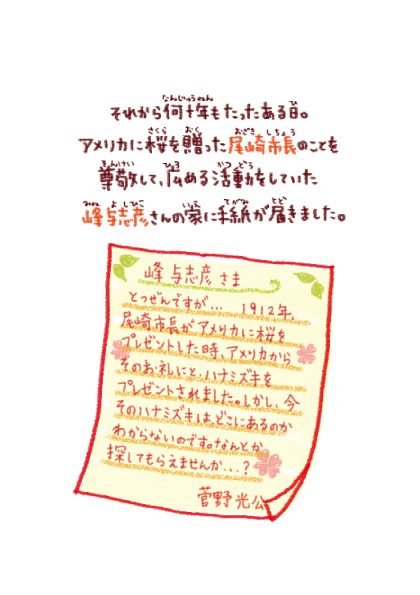 それから何十年もたったある日。
アメリカに桜を贈った尾崎市長のことを
尊敬して、広める活動をしていた
峰与志彦さんの家に手紙が届きました。
峰 与志彦 さま
とつぜんですが… 1912年、
尾崎市長がアメリカに桜を
プレゼントした時、アメリカから
そのお礼にと、ハナミズキを
プレゼントされました。しかし、今
そのハナミズキは、どこにあるのか
わからないのです。なんとか
探してもらえませんか…?
菅野 光公